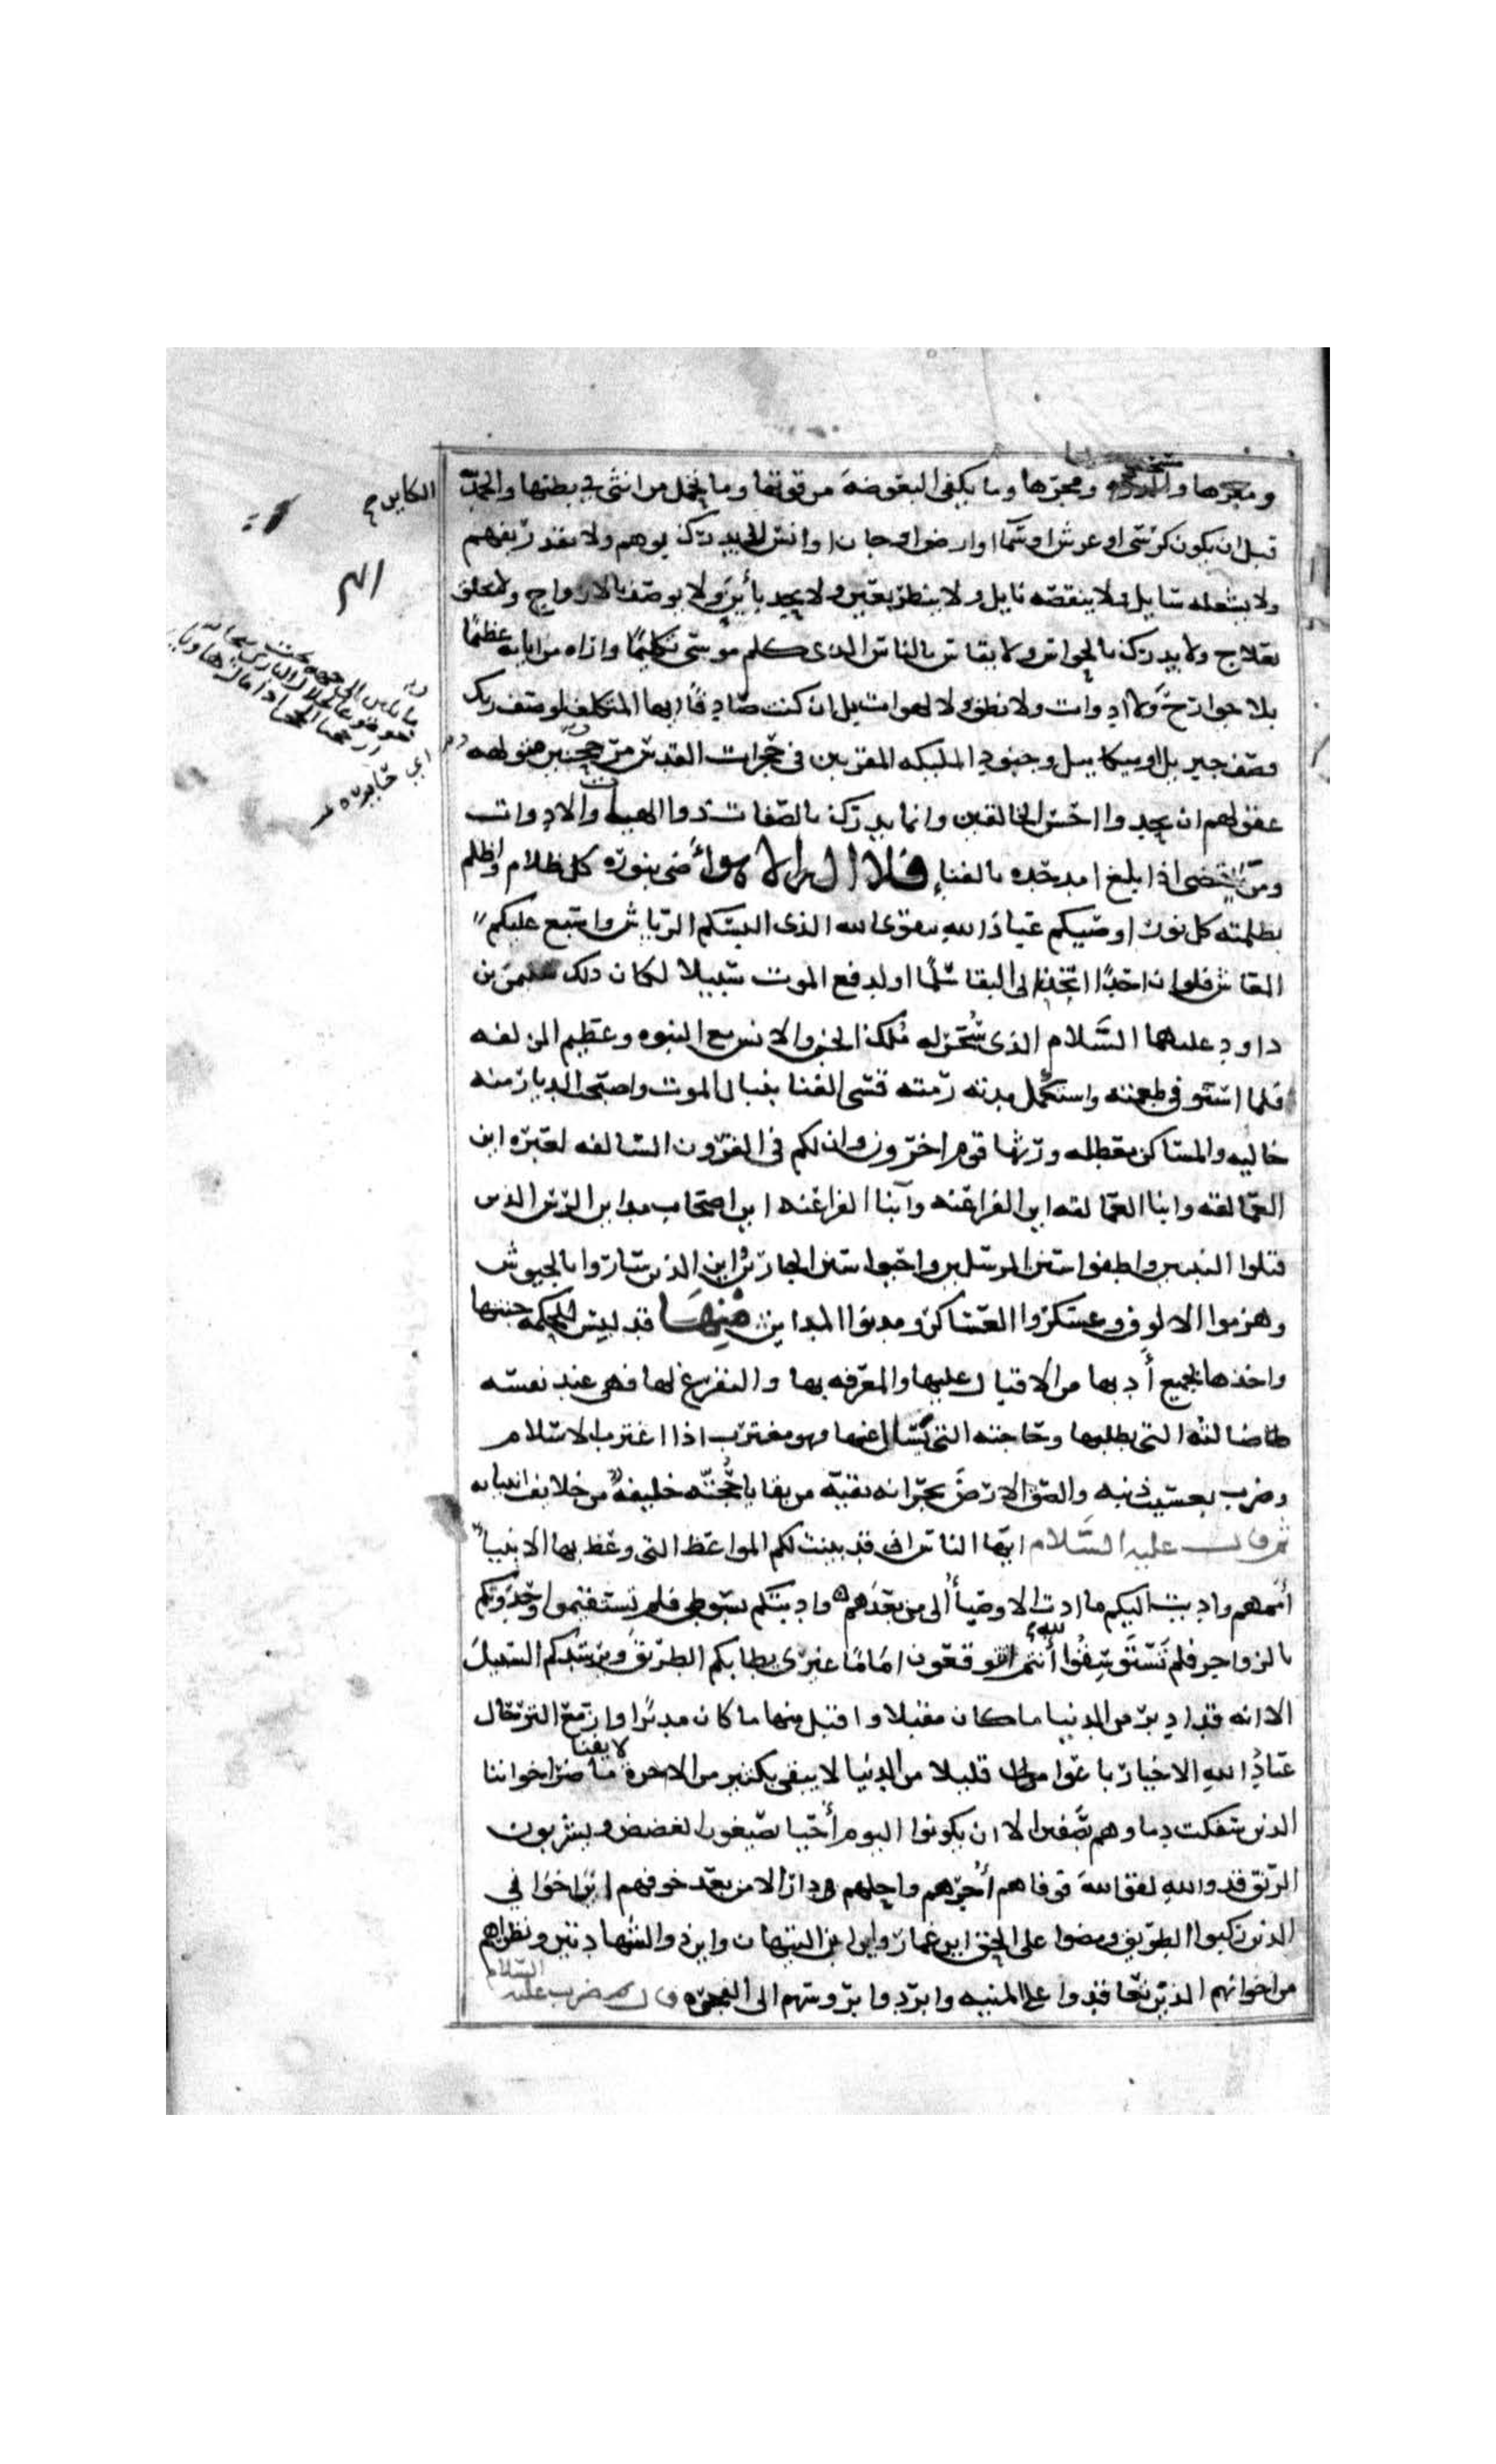 ومقرها و ومجرها وما يكفي البعوضة من قوتها وما تحمل من انثى في بطنها والحمد لله
الكاين
قبل ان يكون كرسي او عرش او سما او ارض او جان او انس لا يدرك بوهم ولا يقدر بفهم
ولا يشغله سايل ولا ينقصه نايل ولا ينظر بعين ولا يحد بأين ولا يوصف بالازواج ولا يخلق
بعلاج ولا يدرك بالحواس ولا يقاس بالناس الذي كلم موسى تكليمًا واراه من اياته عظيمًا
بلا جوارح ولا ادوات ولا نطق ولا لهوات بل ان كنت صادقًا ايها المتكلف لوصف ربك
فصف جبريل او ميكاييل وجنود المليكه المقربين في حجرات القدس مرجحنين متولهه
عقولهم ان يحدوا احسن الخالقين وانما يدرك بالصفات ذوا الهيات والادوات
ومن ينقضي اذا بلغ امد حده بالفنا فلا اله الا هو أضى بنوره كل ظلام واظلم
بظلمته كل نور اوصيكم عباد الله بتقوى الله الذي البسكم الرياش واسبغ عليكم
المعاش فلو ان احدًا يجد الى البقا سلمًا او لدفع الموت سبيلا لكان ذلك سليمن بن
داود عليهما السلام الذي سخر له ملك الجن والانس مع النبوه وعظيم الزلفه
فلما استوفى طعمته واستكمل مدته رمته قسي الفنا بنبال الموت واصبحت الديار منه
خاليه والمساكن معطله ورثها قوم اخرون وان لكم في القرون السالفه لعبره اين
العمالقه وابنا العمالقه اين الفراعنه وابنا الفراعنه اين اصحاب مداين الرس الذين
قتلوا النبيين واطفوا سنن المرسلين واحيوا سنن الجبارين واين الذين ساروا بالجيوش
وهزموا الالوف وعسكروا العساكر ومدنوا المداين منها قد لبس للحكمه جنتها
واخذها بجميع أدبها من الاقبال عليها والمعرفه بها والتفرغ لها فهي عند نفسه
ضالته التي يطلبها وحاجته التي يسأل عنها وهو مغترب اذا اغترب الاسلام
وضرب بعسيب ذنبه والصق الارض بجرانه بقيه من بقايا حجته خليفة من خلايف انبيايه
ثم قال عليه السلام ايها الناس اني قد بثثت لكم المواعظ التي وعظ بها الانبيا
أممهم واديت اليكم ما ادت الاوصيا الى من بعدهم وادبتكم بسوطي فلم تستقيموا وحدوتكم
بالزواجر فلم تستوسقوا لله أنتم اتتوقعون امامًا غيري يطا بكم الطريق ويرشدكم السبيل
الا انه قد ادبر من الدنيا ما كان مقبلا واقبل منها ما كان مدبرا وازمع الترحال
عباد الله الاخيار باعوا قليلا من الدنيا لا يبقى بكثير من الاخره لا يفنا ما ضر اخواننا
الذين سفكت دماوهم بصفين الا ان يكونوا اليوم أحيا يسيغون الغصص ويشربون
الرنق قد والله لقوا الله فوفاهم أجرهم واحلهم دار الامن بعد خوفهم اين اخواني
الذين ركبوا الطريق ومضوا على الحق اين عمار واين ابن التيهان واين ذو الشهادتين ونظراهم
من اخوانهم الذين تعاقدوا على المنيه وابرد بروسهم الى الفجره قال ثم ضرب عليه السلام